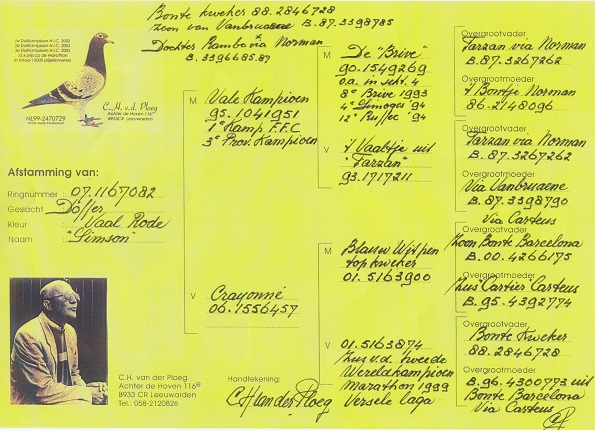 Bonte kweker 88.2846728
zoon van Vanbruaene B.87.3398785
x
Dochter Rambo via Norman
B. 3396685.87
1e Duifkampioen N.I.C. 2002
2e Duifkampioen N.I.C. 2003
3e Duifkampioen N.I.C. 2003
C.H. v.d. Ploeg
Achter de Hoven 116
8933CR Leeuwarden
NL99-2470729
Afstamming van:
Ringnummer : 07.1167082
Geslacht : Doffer
Kleur : Vaal Rode
Naam : "Simson"
C.H. van der Ploeg
Achter de Hoven 116
8933 CR Leeuwarden
Tel.: 058-2120826
Handtekening:
CH van der Ploeg
M
Vale Kampioen
95.1041951
1e Kamp F.F.C
3e Prov. Kampioen
V
Crayonné
06.1556457
M
De "Brive"
90.1549269
o.a. in sekt. 4
8e Brive 1993
4e Limoges '94
12e Ruffec '94
V
't Vaaltje uit
"Tarzan"
93.1717211
M
Blauw Witpen
topkweker
01.5163900
V
01.5163874
Zus v.d. tweede
Wereldkampioen
Marathon 1999
Versele laga
Overgrootvader
Tarzan via Norman
B.87.3267262
Overgrootmoeder
't Bontje Norman
86-2148096
Overgrootvader
Tarzan via Norman
B.87.3267262
Overgrootmoeder
Via Vanbruaene
B.87.3398790
Via Carteus
Overgrootvader
Zoon Bonte Barcelona
B.00.4266175
Overgrootmoeder
Zus Cartier Carteus
B.95.4392774
Overgrootvader
Bonte Kweker
88.2846728
Overgrootmoeder
B.96.4300773 uit
Bonte Barcelona
Via Carteus